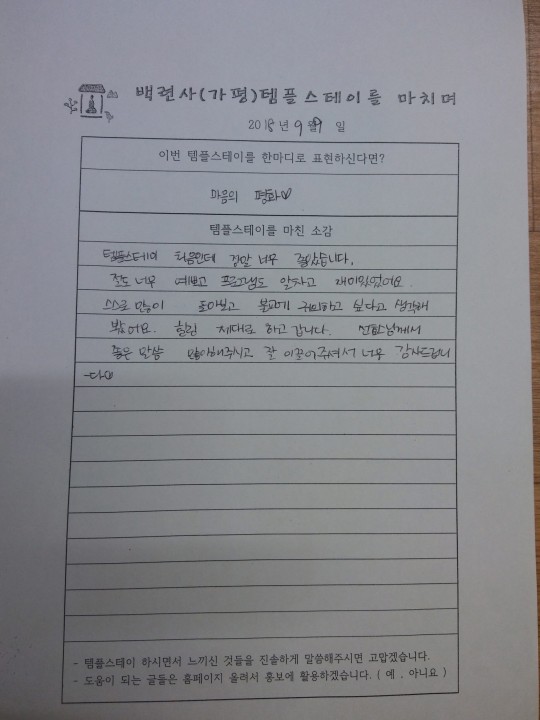 백련사(가평)템플스테이를 마치며
2018년 9월 9일
이번 템플스테이를 한마디로 표현하신다면?
마음의 평화♡
템플스테이를 마친 소감
템플스테이 처음인데 정말 너무 좋았습니다.
절도 너무 예쁘고 프로그램도 알차고 재미있었어요.
스스로 많이 돌아보고 불교에 귀의하고 싶다고 생각해
봤어요. 힐링 제대로 하고 갑니다. 선학스님께서
좋은 말씀 많이해주시고 잘 이끌어주셔서 너무 감사드립니
-다♡
- 템플스테이 하시면서 느끼신 것들을 진솔하게 말씀해주시면 고맙겠습니다.
- 도움이 되는 글들은 홈페이지 올려서 홍보에 활용하겠습니다. ( 예 , 아니요 )